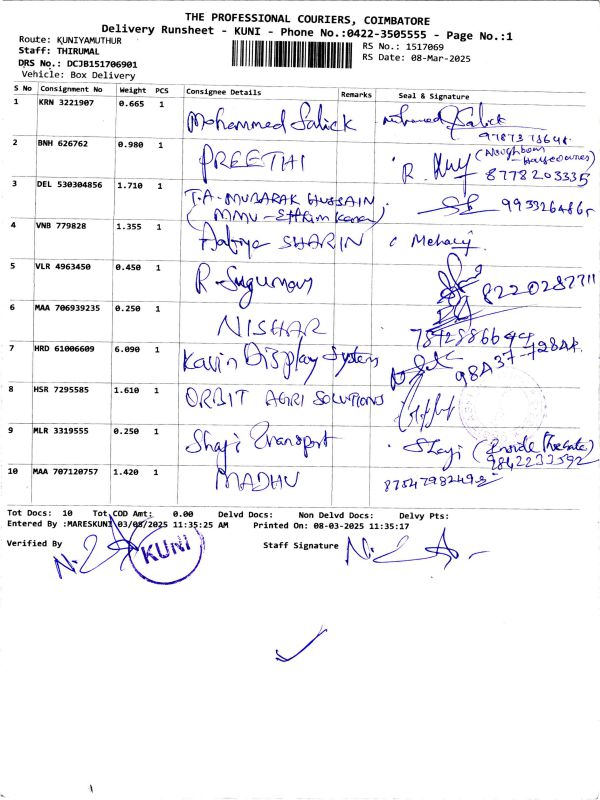 THE PROFESSIONAL COURIERS, COIMBATORE
Delivery Runsheet - KUNI - Phone No.:0422-3505555 - Page No.:1
Route: KUNIYAMUTHUR
Staff: THIRUMAL
DRS No.: DCJB151706901
Vehicle: Box Delivery
RS No.: 1517069
RS Date: 08-Mar-2025
S No Consignment No Weight PCS Consignee Details Remarks Seal & Signature
1 KRN 3221907 0.665 1 Mohammed Salick Mohamed Salick
2 BNH 626762 0.980 1 PREETHI R. (Neighbour
8778203335
3 DEL 530304856 1.710 1 T.A. MUBARAK HUSSAIN
4 VNB 779828 1.355 1 SHARIN
5 VLR 4963450 0.450 1 R. 8220287711
6 MAA 706939235 0.250 1 NISHAR
7 HRD 61006609 6.090 1 Kavin Display System
8 HSR 7295585 1.610 1 ORBIT AGRI SOLUTIONS
9 MLR 3319555 0.250 1 Shaji Transport Shaji (Inside
9842233592
10 MAA 707120757 1.420 1 MADHU
Tot Docs: 10 Tot COD Amt: 0.00 Delvd Docs: Non Delvd Docs: Delvy Pts:
Entered By :MARESKUNI 03/08/2025 11:35:25 AM Printed On: 08-03-2025 11:35:17
Verified By Staff Signature
KUNI